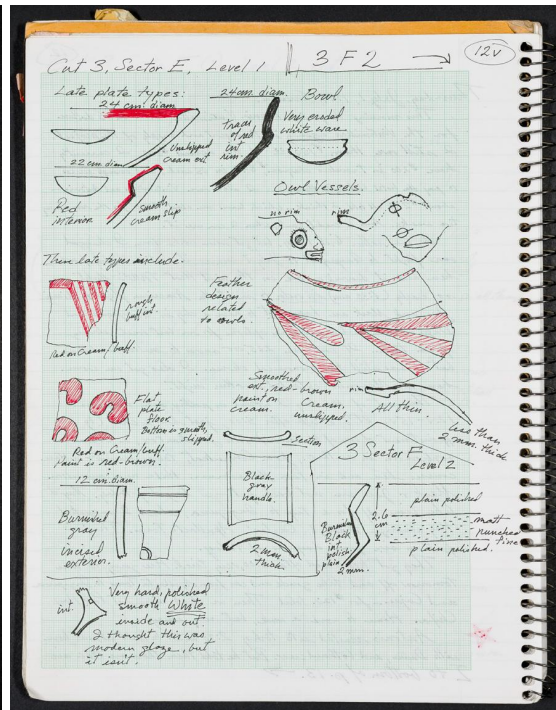 Cut 3, Sector E, Level 1
3 F 2
12V
Late plate types:
24 cm. diam
Unslipped
cream ext
22 cm. diam
Red
interior
smooth
cream slip
24 cm. diam.
Bowl
Traces
of red
int
rim.
Very eroded
white ware
Owl Vessels.
no rim
rim
These late types include.
rough
buff int.
Red on Cream/buff.
Feather
designs
related
to owls
Flat
plate
floor
Bottom is smooth,
slipped.
Red on Cream/buff.
Paint is red-brown.
Smoothed
ext., red-brown
paint on
cream.
Cream,
unslipped.
rim
All thin.
less than
2 mm. thick
12 cm. diam.
Burnished
gray
incised
exterior.
Section
Black
gray
handle.
2 mm
thick.
3 Sector F
Level 2
Burnished
Black
int
polish
plain
2 mm.
2.6
cm
plain polished
matt
punched
fine
plain polished.
int.
Very hard, polished
smooth White
inside and out.
I thought this was
modern glaze, but
it isn't.